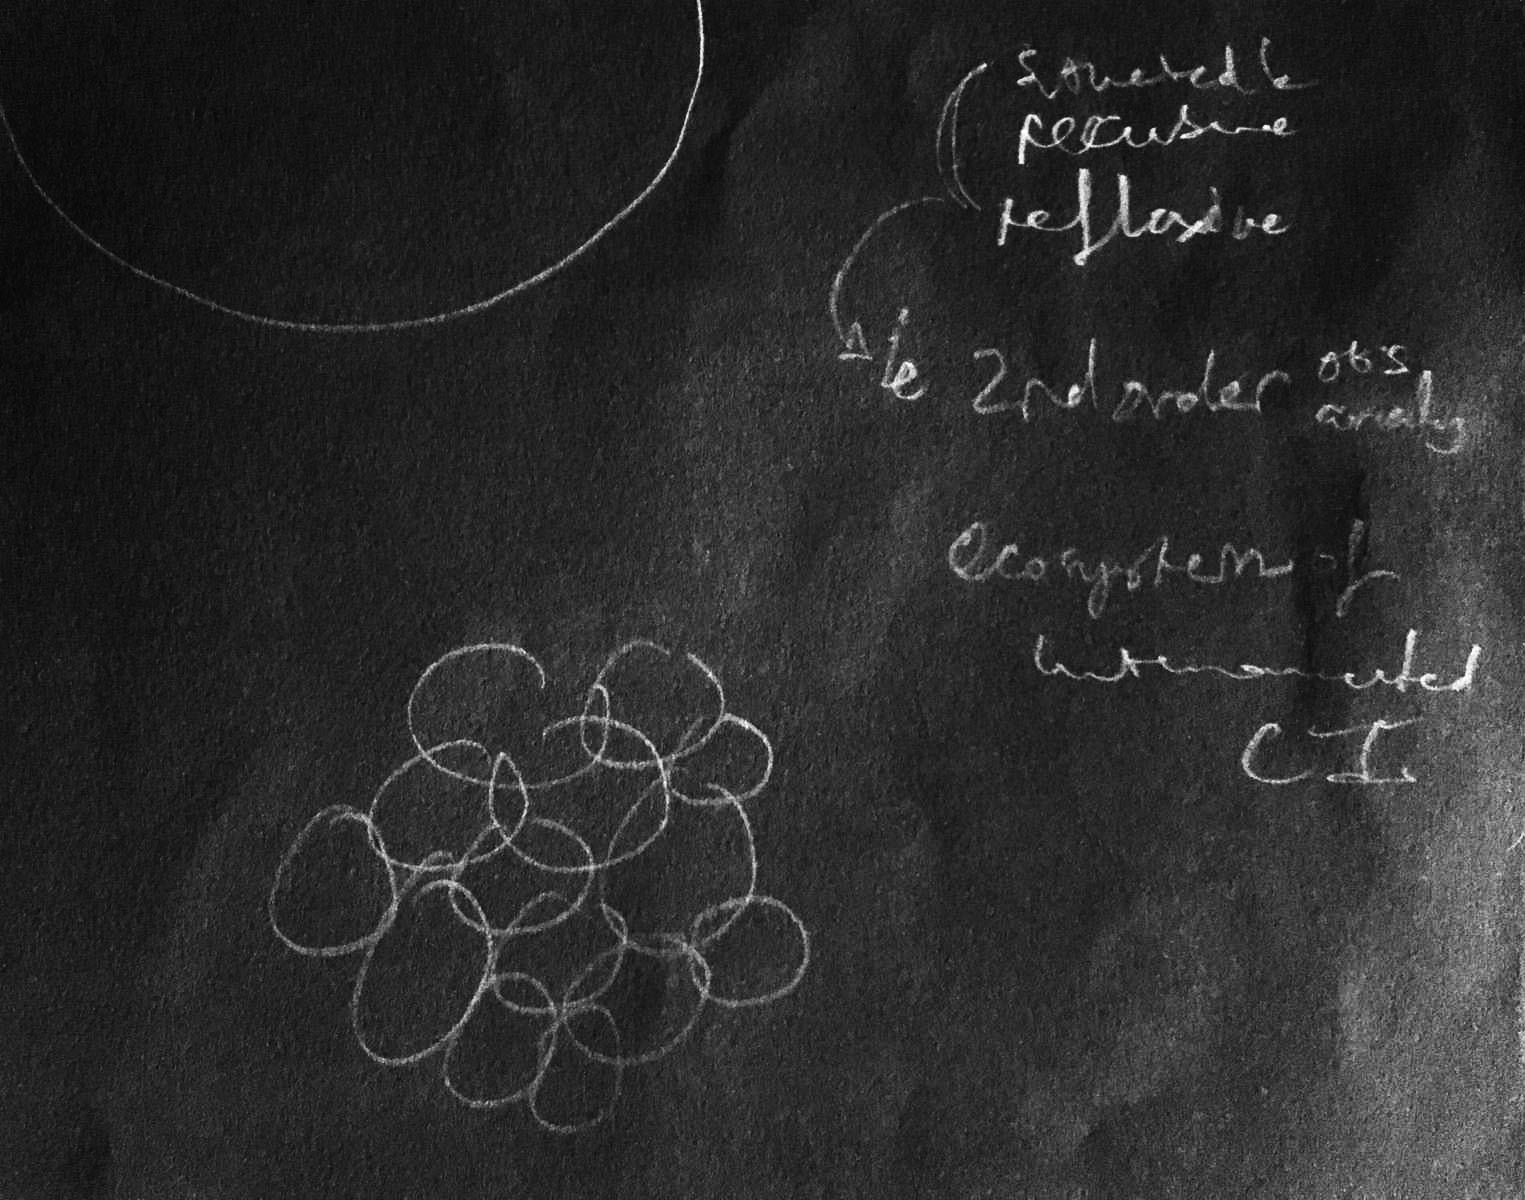 situated &
recursive
reflexive
ie 2nd order obs
analy
ecosystem of
CI